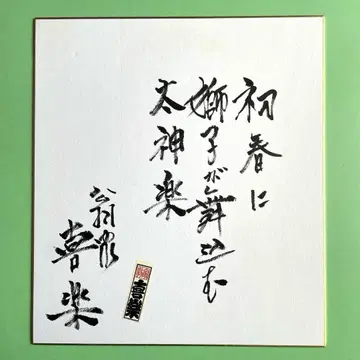 初春に
獅子が舞込む
太神楽
翁家
喜楽
喜楽